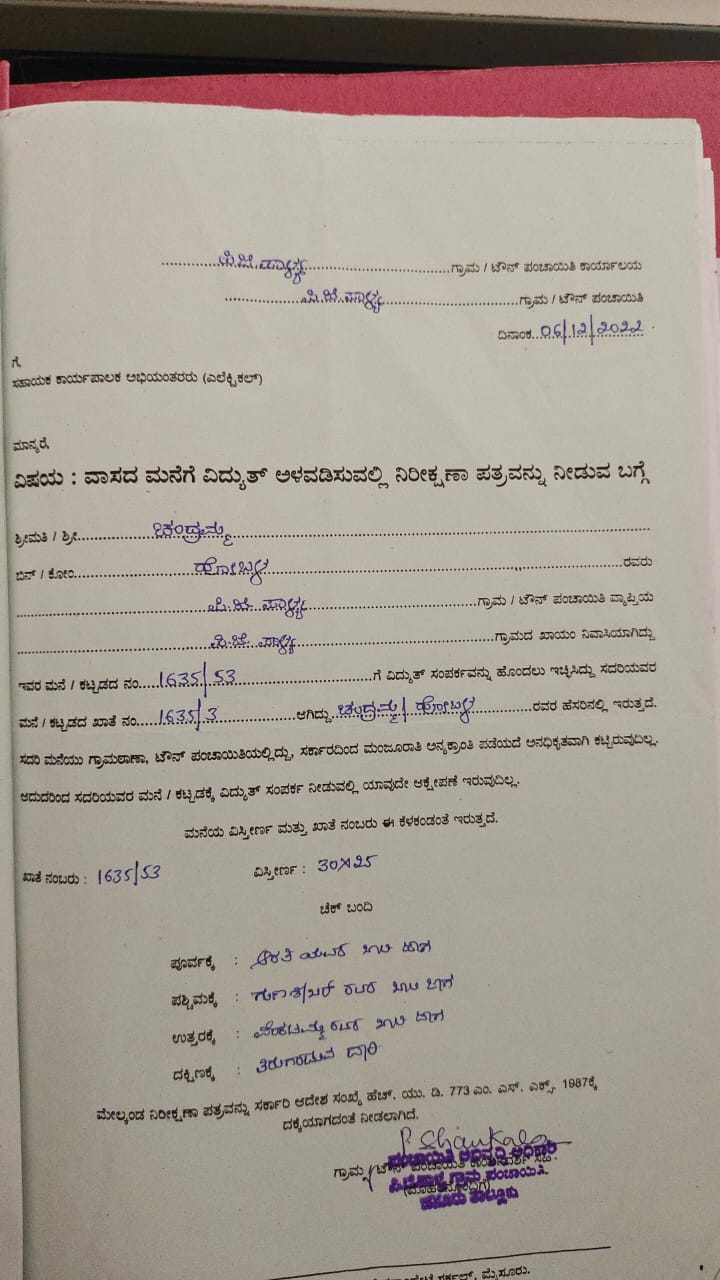 ಪಿ.ಜಿ.ಪಾಳ್ಯ ಗ್ರಾಮ / ಟೌನ್ ಪಂಚಾಯಿತಿ ಕಾರ್ಯಾಲಯ
ಪಿ.ಜಿ.ಪಾಳ್ಯ ಗ್ರಾಮ / ಟೌನ್ ಪಂಚಾಯಿತಿ
ದಿನಾಂಕ 06/12/2022
ಗೆ,
ಸಹಾಯಕ ಕಾರ್ಯಪಾಲಕ ಅಭಿಯಂತರರು (ಎಲೆಕ್ಟ್ರಿಕಲ್)
ಮಾನ್ಯರೆ,
ವಿಷಯ : ವಾಸದ ಮನೆಗೆ ವಿದ್ಯುತ್ ಅಳವಡಿಸುವಲ್ಲಿ ನಿರೀಕ್ಷಣಾ ಪತ್ರವನ್ನು ನೀಡುವ ಬಗ್ಗೆ
ಶ್ರೀಮತಿ / ಶ್ರೀ ಚಂದ್ರಮ್ಮ
ಬಿನ್ / ಕೋಂ ರವರು
ಪಿ.ಜಿ. ಪಾಳ್ಯ ಗ್ರಾಮ / ಟೌನ್ ಪಂಚಾಯಿತಿ ವ್ಯಾಪ್ತಿಯ
ಪಿ.ಜಿ. ಪಾಳ್ಯ ಗ್ರಾಮದ ಖಾಯಂ ನಿವಾಸಿಯಾಗಿದ್ದು
ಇವರ ಮನೆ / ಕಟ್ಟಡದ ನಂ. 1635/53 ಗೆ ವಿದ್ಯುತ್ ಸಂಪರ್ಕವನ್ನು ಹೊಂದಲು ಇಚ್ಛಿಸಿದ್ದು ಸದರಿಯವರ
ಮನೆ / ಕಟ್ಟಡದ ಖಾತೆ ನಂ. 1635/3 ಆಗಿದ್ದು ಚಂದ್ರಮ್ಮ / ರವರ ಹೆಸರಿನಲ್ಲಿ ಇರುತ್ತದೆ.
ಸದರಿ ಮನೆಯು ಗ್ರಾಮಠಾಣಾ, ಟೌನ್ ಪಂಚಾಯಿತಿಯಲ್ಲಿದ್ದು, ಸರ್ಕಾರದಿಂದ ಮಂಜೂರಾತಿ ಅನ್ಯಕ್ರಾಂತಿ ಪಡೆಯದೆ ಅನಧಿಕೃತವಾಗಿ ಕಟ್ಟಿರುವುದಿಲ್ಲ.
ಆದುದರಿಂದ ಸದರಿಯವರ ಮನೆ / ಕಟ್ಟಡಕ್ಕೆ ವಿದ್ಯುತ್ ಸಂಪರ್ಕ ನೀಡುವಲ್ಲಿ ಯಾವುದೇ ಆಕ್ಷೇಪಣೆ ಇರುವುದಿಲ್ಲ.
ಮನೆಯ ವಿಸ್ತೀರ್ಣ ಮತ್ತು ಖಾತೆ ನಂಬರು ಈ ಕೆಳಕಂಡಂತೆ ಇರುತ್ತದೆ.
ಖಾತೆ ನಂಬರು : 1635/53 ವಿಸ್ತೀರ್ಣ : 30x25
ಚೆಕ್ ಬಂದಿ
ಪೂರ್ವಕ್ಕೆ : ಖಾಲಿ ಜಾಗ
ಪಶ್ಚಿಮಕ್ಕೆ : ರವರ ಖಾಲಿ ಜಾಗ
ಉತ್ತರಕ್ಕೆ : ವೆಂಕಟಮ್ಮ ರವರ ಖಾಲಿ ಜಾಗ
ದಕ್ಷಿಣಕ್ಕೆ : ತಿರುಗಾಡುವ ದಾರಿ
ಮೇಲ್ಕಂಡ ನಿರೀಕ್ಷಣಾ ಪತ್ರವನ್ನು ಸರ್ಕಾರಿ ಆದೇಶ ಸಂಖ್ಯೆ ಹೆಚ್. ಯು. ಡಿ. 773 ಎಂ. ಎಸ್. ಎಕ್ಸ್. 1987ಕ್ಕೆ
ದಕ್ಕೆಯಾಗದಂತೆ ನೀಡಲಾಗಿದೆ.
P. Shankar
ಪಂಚಾಯಿತಿ ಅಭಿವೃದ್ಧಿ ಅಧಿಕಾರಿ
ಗ್ರಾಮ / ಟೌನ್ ಪಂಚಾಯಿತಿ ಕಾರ್ಯದರ್ಶಿ ಸಹಿ
ಪಿ.ಜಿ.ಪಾಳ್ಯ ಗ್ರಾಮ ಪಂಚಾಯಿತಿ.
(ಮೊಹರಿನೊಂದಿಗೆ)
ಹನೂರು ತಾಲ್ಲೂಕು
ಸರ್ಕಲ್, ಮೈಸೂರು.